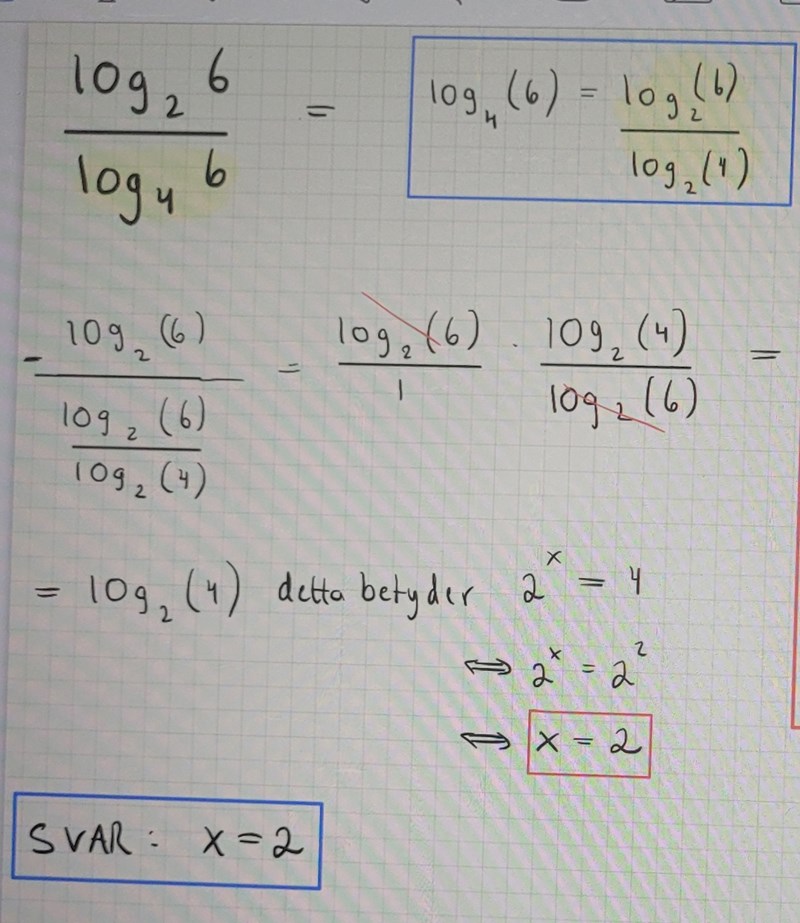 log₂ 6 / log₄ 6 =
log₄(6) = log₂(6) / log₂(4)
- log₂(6) / (log₂(6) / log₂(4)) = log₂(6) / 1 · log₂(4) / log₂(6) =
= log₂(4) detta betyder 2ˣ = 4
⟺ 2ˣ = 2²
⟺ x = 2
SVAR: x = 2